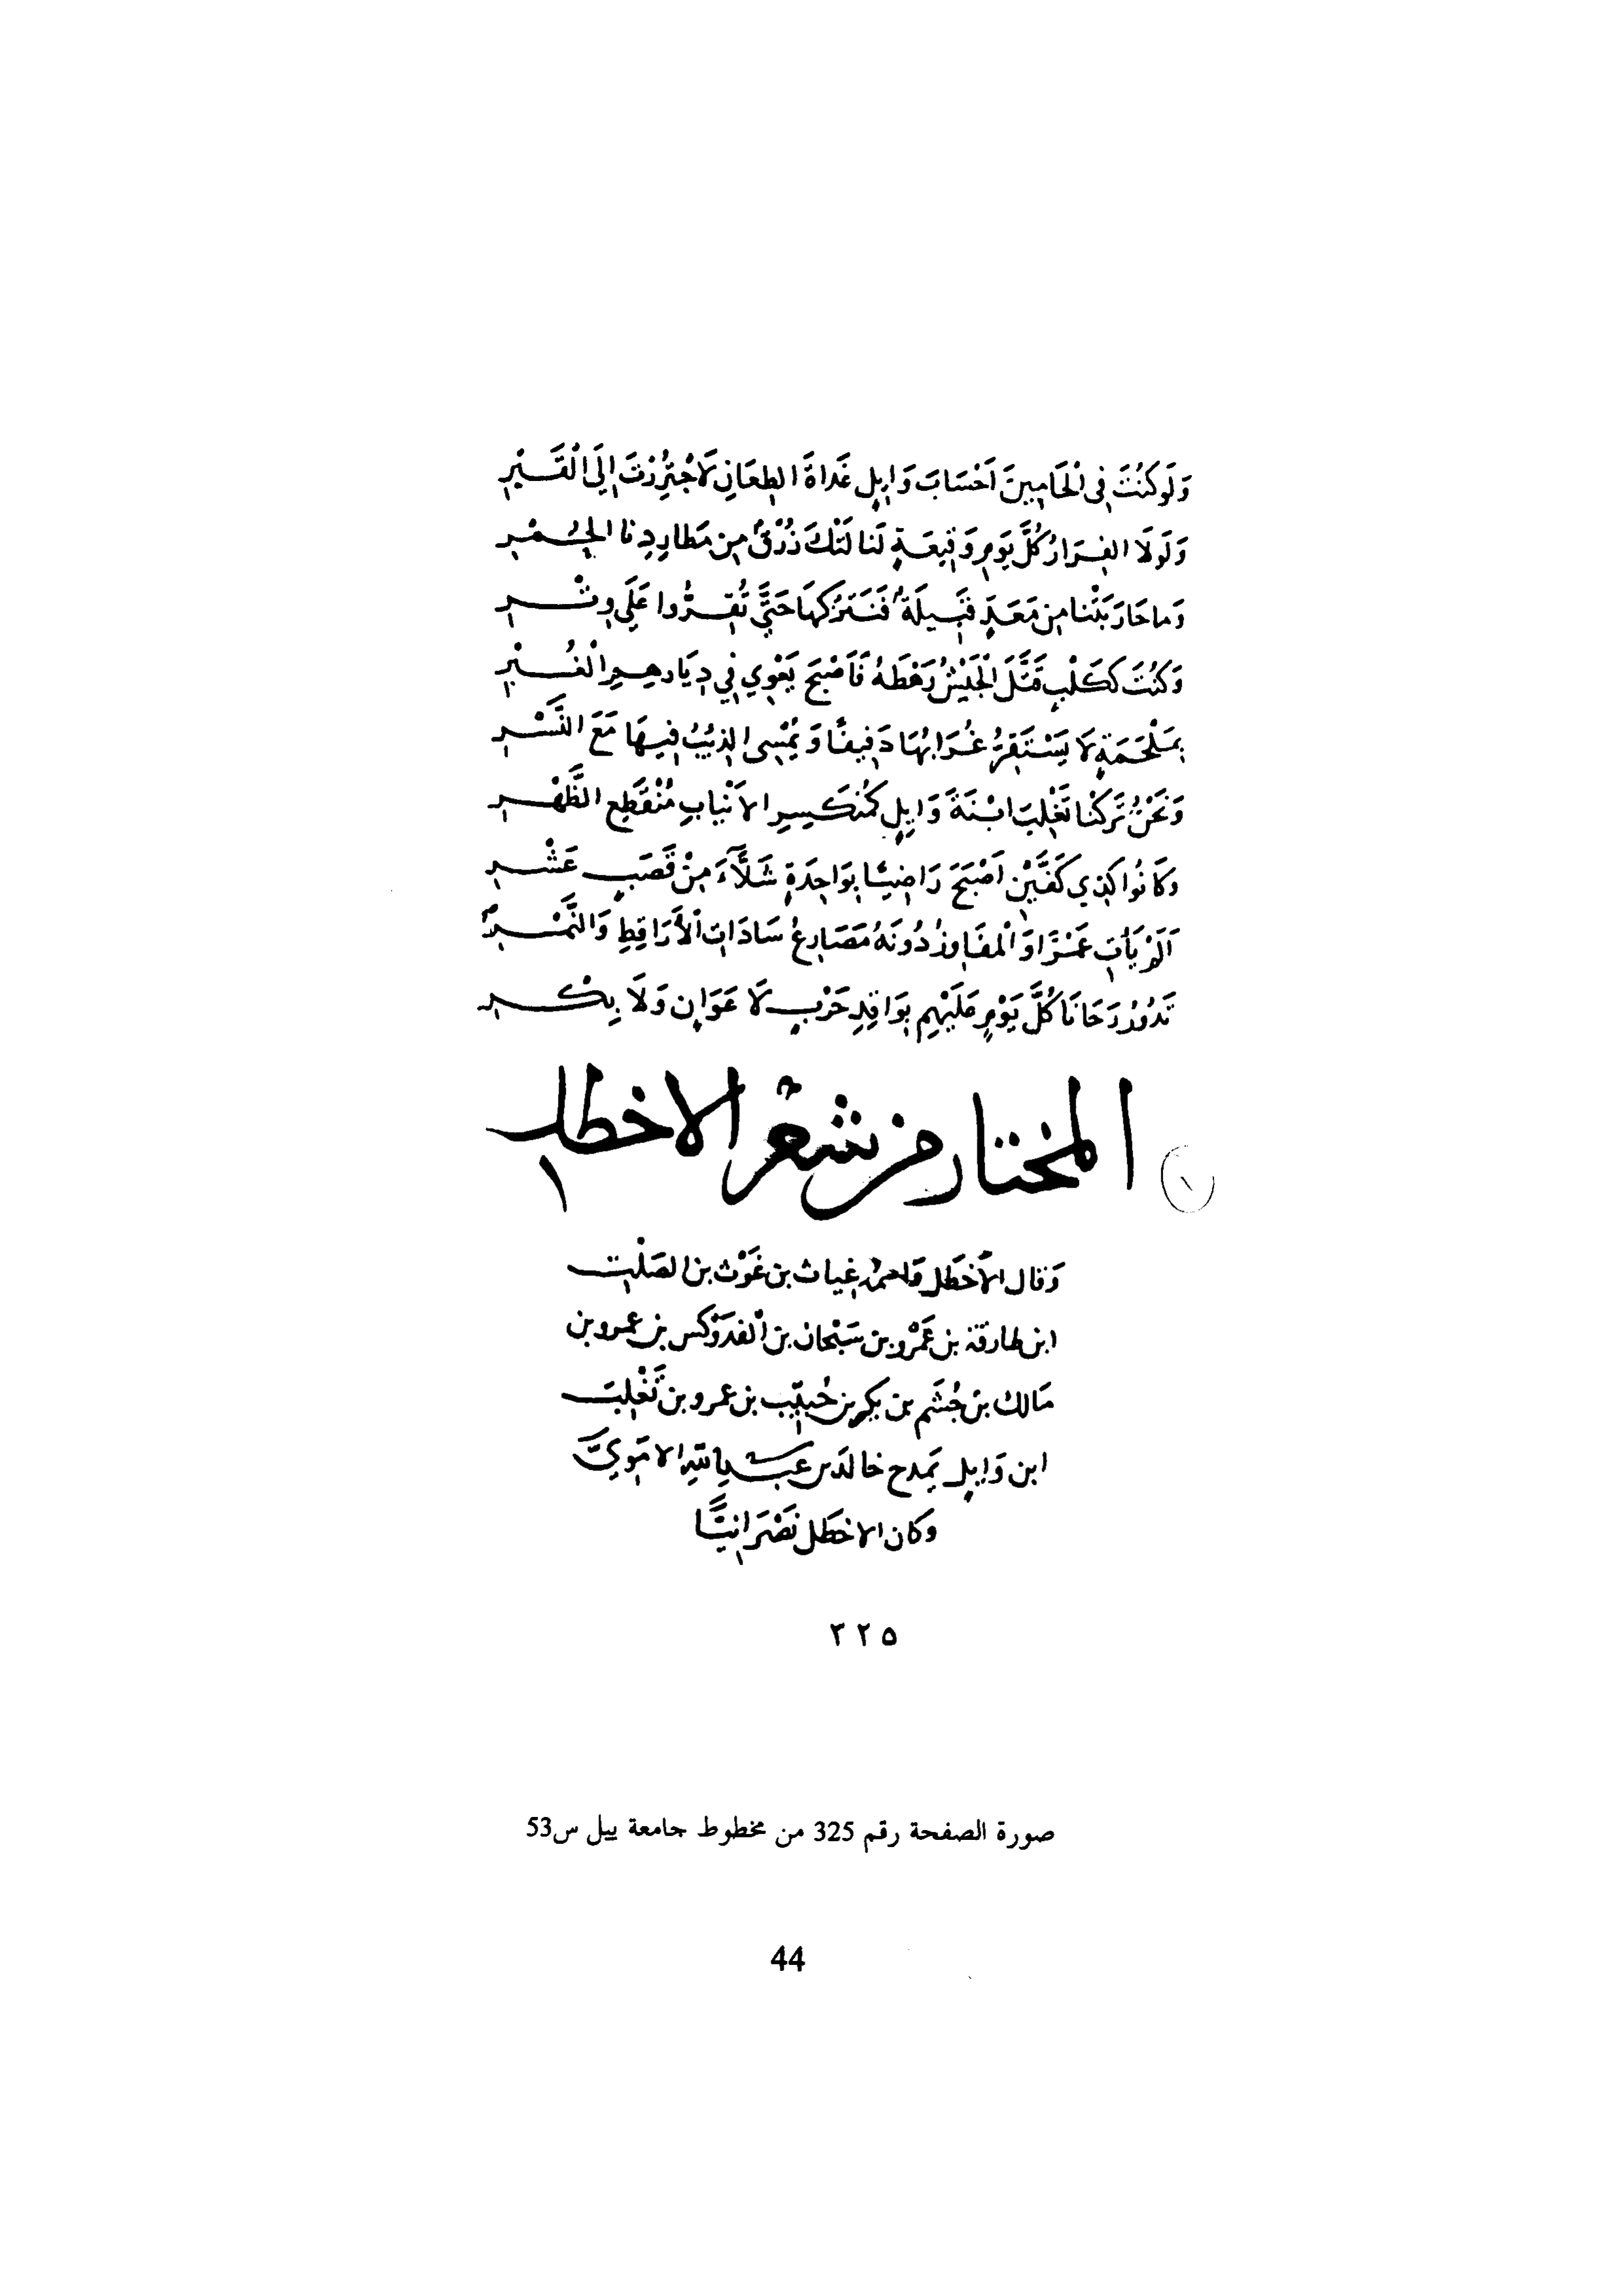 وَلَوكُنْتَ فِي الْحَامِيِنَ اَحْسَابَ وَايِلٍ غَدَاةَ الطِعَانِ لَاجْتُرِزْتَ اِلَى الْقَبْرِ
وَلَولَا الفِرَارُ كُلَّ يَومِ وَقِيعَةٍ لَنَا لَنَتْكَ زُرْقٌ مِن مَطَارِدِنَا الحُمْرِ
وَمَا حَارَبَتْنَا مِن مَعَدٍّ قَبِيلَةٌ فَنَتْرُكَهَا حَتَّى تُقِرُّوا عَلَى وِتْرِ
وَكُنْتَ كَكَلْبٍ قَتَّلَ الْجَيْشُ رَهْطَهُ فَاَصْبَحَ يَعْوِي فِي دِيَارِهِمِ الْغُبْرِ
بِمَلْحَمَةٍ لَا يَسْتَقِرُّ غُرَابُهَا دَفِيفًا وَيُمْسِي الذِيبُ فِيهَا مَعَ النَّسْرِ
وَنَحْنُ تَرَكْنَا تَغْلِبَ ابْنَةَ وَايِلٍ كَمُنْكَسِرِ الاَنْيَابِ مُنْقَطِعِ الظَّهْرِ
وَكَانُوا كَذِي كَفَّيْنِ اَصْبَحَ رَاضِيًا بِوَاحِدَةٍ شَلَّآءَ مِنْ قَصَبٍ عَشْرِ
اَلَمْ يَأْتِ عَمْرًا وَالْمَفَاوِزُ دُونَهُ مَصَارِعُ سَادَاتِ الْأَرَاقِطِ وَالنَّمْرِ
تَدُورُ رَحَانَا كُلَّ يَوْمٍ عَلَيْهِمِ بِوَاقِدِ حَرْبٍ لَا عَوَانٍ وَلَا بِكْرِ
المختار من شعر الاخطل
١
وَقَالَ الأَخْطَل وَاسمُهُ غِيَاث بن غَوْث بن الصَلْتِ
ابن طارقة بن عَمْرو بن سَيْحَان بن الْفَدَوْكَس بن عمرو بن
مَالك بن جُشَم بن بكر بن حُبَيِّب بن عمرو بن تَغْلِبَ
ابن وَايِل يَمدح خالدَ بن عَبدِ اللهِ الامَوِيَّ
وَكان الاخطَل نَصْرَانِيًّا
٣٢٥
صورة الصفحة رقم 325 من مخطوط جامعة ييل س53
44